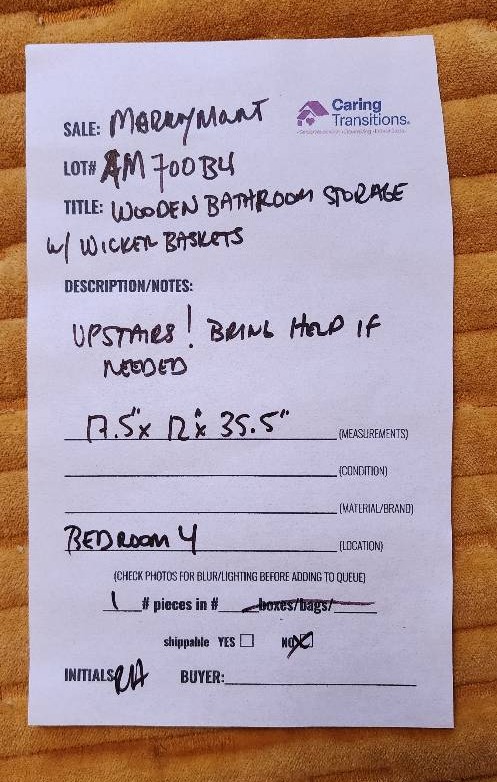 Caring
Transitions.
SALE: MERRYMANT
LOT# AM700B4
TITLE: WOODEN BATHROOM STORAGE
W/ WICKER BASKETS
DESCRIPTION/NOTES:
UPSTAIRS! BRING HELP IF
NEEDED
17.5" x 12" x 35.5" (MEASUREMENTS)
(CONDITION)
(MATERIAL/BRAND)
BEDROOM 4 (LOCATION)
(CHECK PHOTOS FOR BLUR/LIGHTING BEFORE ADDING TO QUEUE)
1 # pieces in # boxes/bags/
shippable YES NO
INITIALS RA BUYER: